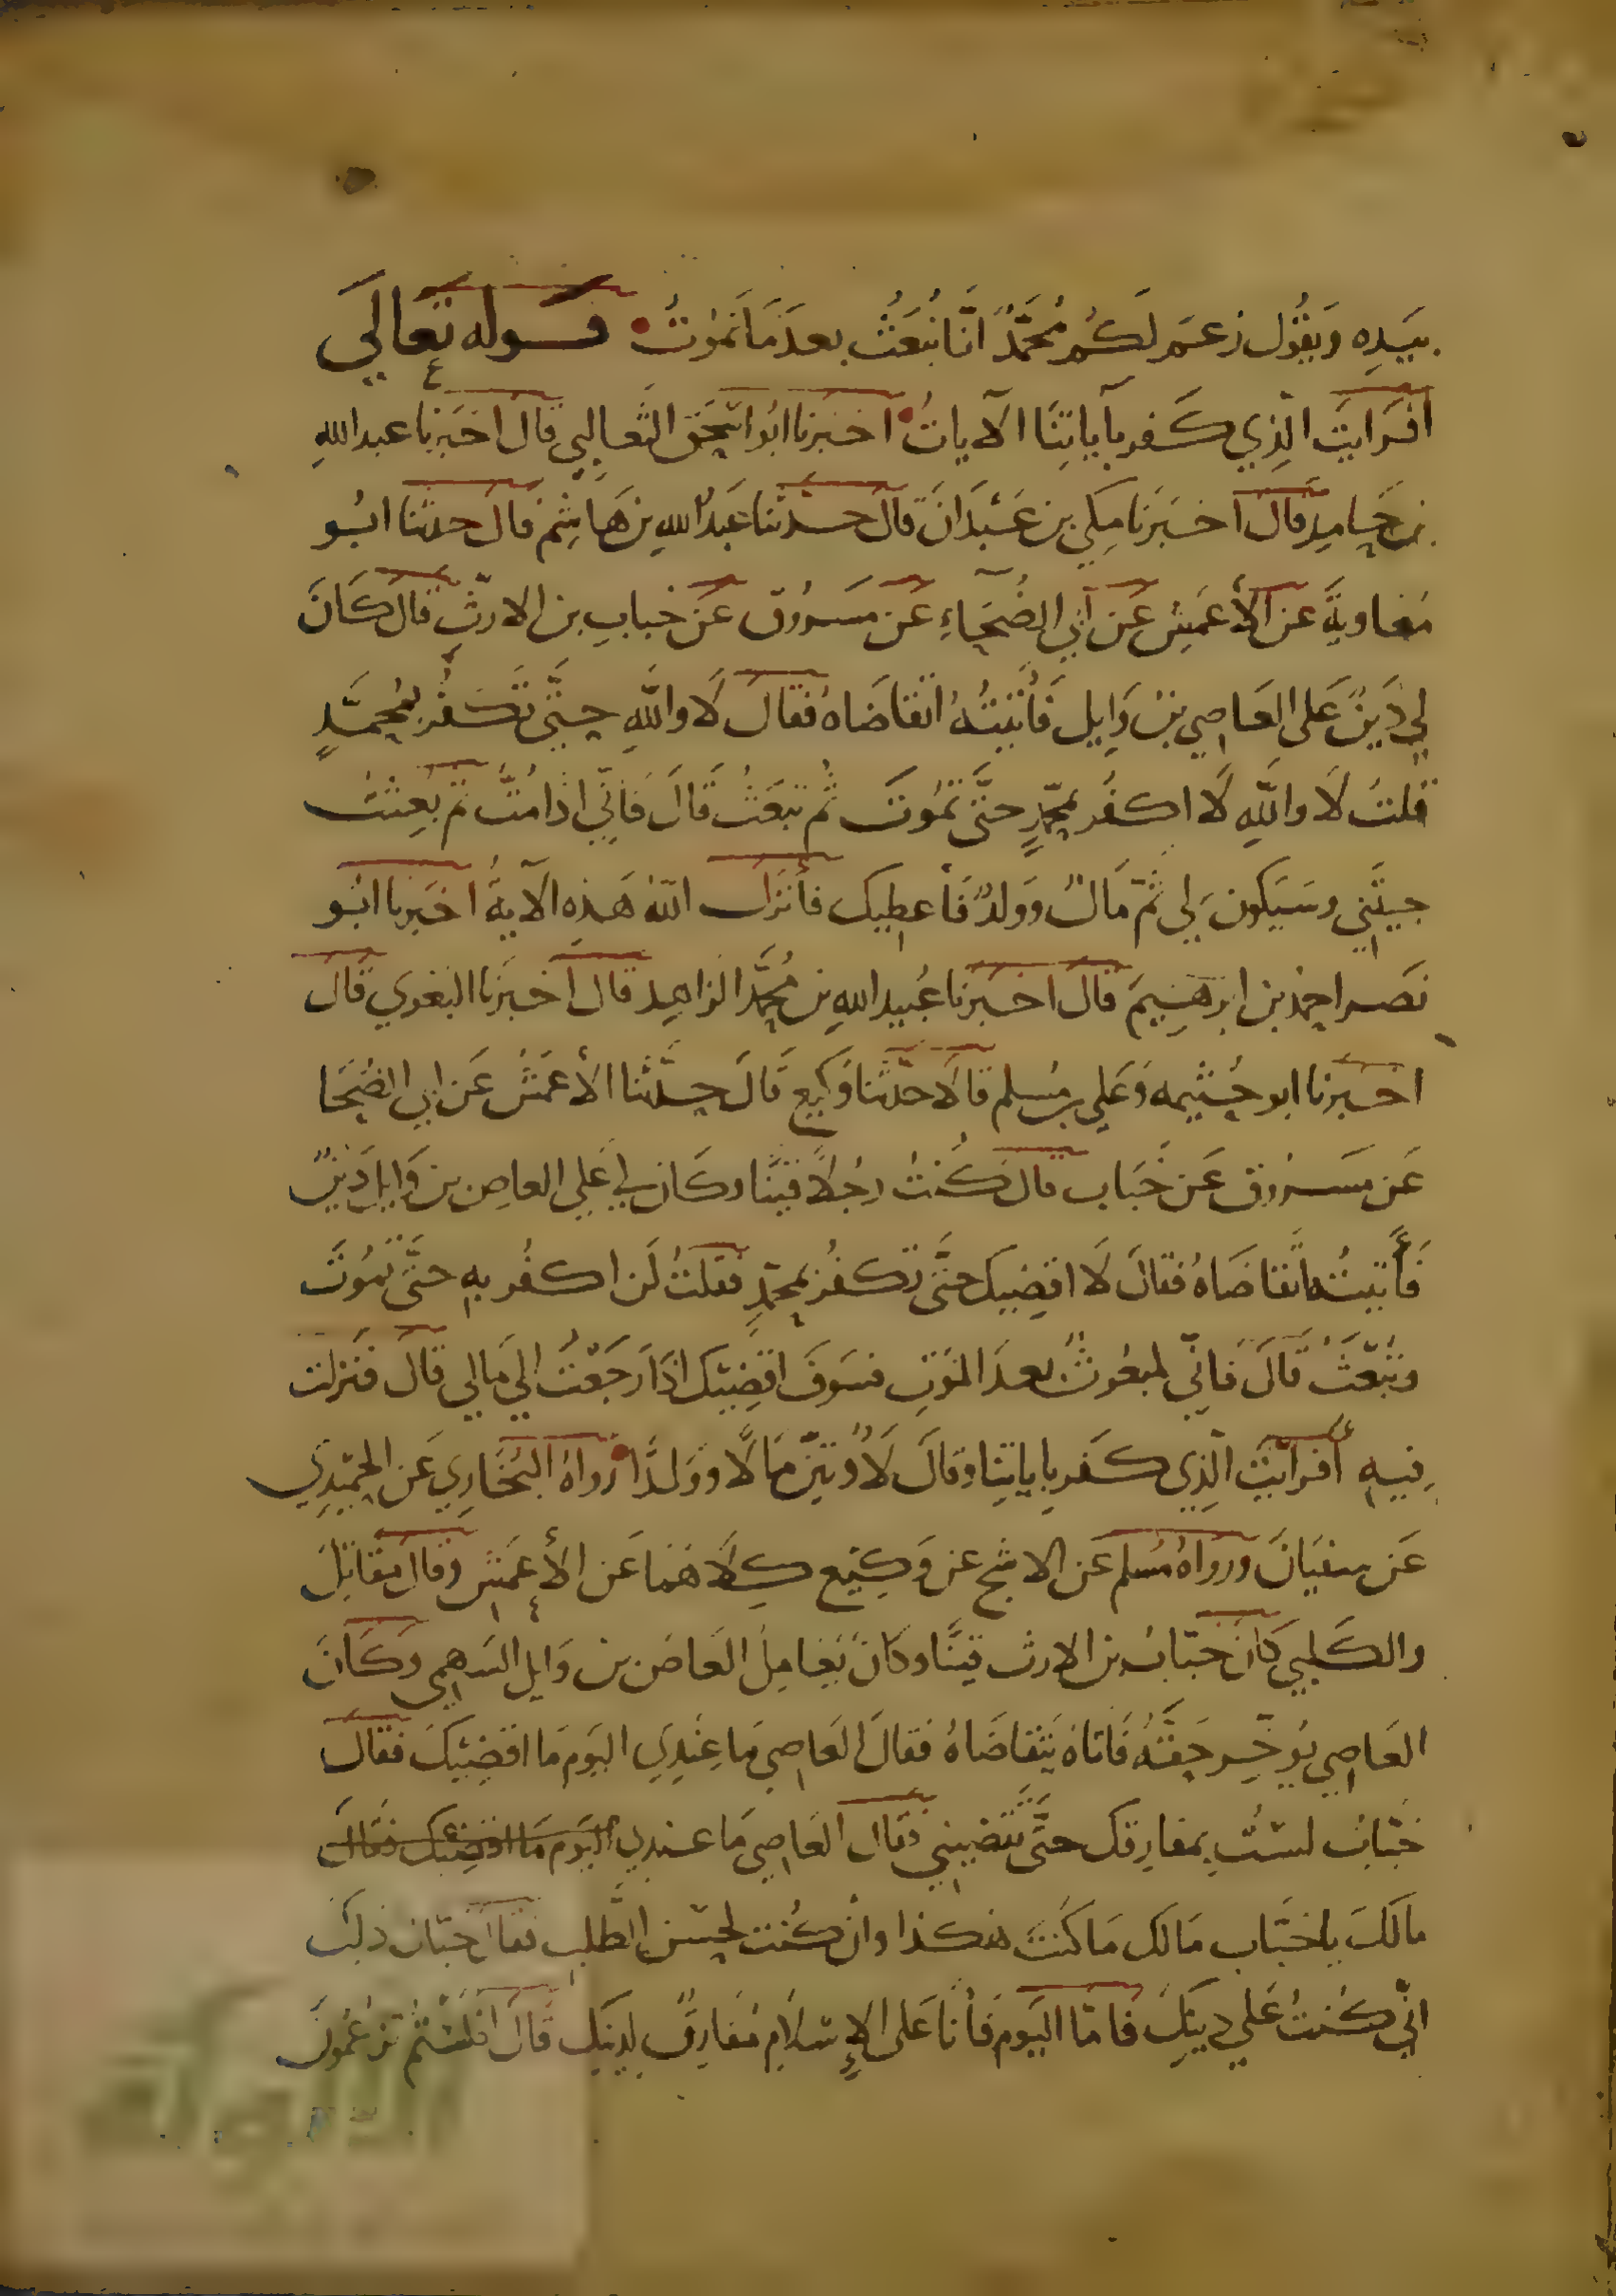 بيَدِه وَيقُول زعَم لَكُم مُحَمَّدٌ انَّا نُبْعَثُ بعدَمَا نَمُوْتُ قوله تعالَى
افَرَايتَ الّذِي كَفر بآياتِنَا الآيات اخبَرنا ابُو اسْحَق الثعالبي قال اخبَرنا عبد اللهِ
بن حَامِد قال اخبَرَنا مكي بن عَبْدَانَ قال حَدثنا عَبدُ اللهِ بن هَاشِم قال حدثنا ابُو
مُعَاويةَ عن الأعمَشِ عَن أبي الضُّحَاءِ عَن مَسرُوق عَن خباب بن الارتّ قال كَانَ
لِي دَينٌ عَلى العَاصِي بن وَايل فَأتيتُهُ اتقاضَاهُ فقالَ لَا واللهِ حتَّى تكفُر بمُحمَّدٍ
قلتُ لَا واللهِ لَا اكفُر بمحمّدٍ حتَّى تمُوتَ ثُم تبعَثُ قالَ فانّي اذا مُتُّ ثم بُعِثتُ
جيتَني وسَيَكونُ لي ثَمّ مَالٌ وَوَلدٌ فَأعطِيك فأنزَل اللهُ هَذِه الآيةُ اخبَرنا ابُو
نَصر احمدُ بن ابرَهِيمَ قال اخبَرنا عُبيد اللهِ بن مُحَمَّد الزاهِد قال اخبَرَنا البَغوي قال
اخبَرنا ابو خَيثمه وَعَلي بن مُسلم قالَا حدّثنَا وَكيع قالَ حدَّثنا الأعمَشُ عَن ابي الضُّحَا
عَن مَسرُوق عَن خَبَاب قال كُنتُ رجُلاً قَيْنًا وكَان لي عَلي العاص بن وَايل دَينٌ
فَأتيتُه اتقاضَاهُ فقالَ لَا اقضِيك حتَّى تكفُرَ بمحمّدٍ فقلتُ لَن اكفُر بهِ حتَّى تموُتَ
وتُبعَثَ قالَ فانّي لمبعُوثٌ بعدَ المَوتِ فسَوفَ اقضِيك اذَا رَجَعْتُ الي مَالي قال فنزلت
فِيهِ أفرايْتَ الّذِي كَفر باياتِنا وقالَ لَأُوتيَنّ مَالًا ووَلدًا رَواهُ البُخَارِي عَن الحمَيْدِي
عَن سفيَانَ وروَاهُ مُسلم عَن الاشج عن وَكِيْع كِلَاهُمَا عَن الأعمَشِ وقال مقاتل
والكَلبي كَانَ خبّابُ بن الارت قينًا وكانَ يعَامِلُ العَاصَ بن وَايل السَهمي وَكَانَ
العَاصِي يُوخّر حَقَّهُ فَاتاهُ يَتقاضَاهُ فَقالَ العَاصِي مَا عِندِي اليَوم مَا اقضِيكَ فقَالَ
خبّابُ لسْتُ بمفارِقك حتَّى تقضِيني فقال العَاصِي مَا عندِي اليَوم مَا اقضِيك فقال
مالَكَ يا خبّاب مَالَك مَا كُنتَ هَكذا وانْ كُنت لحَسَن الطَّلب فقال خبّاب ذلكَ
انّي كُنتُ عَلي دينك فامّا اليَوم فأنا عَلى الإسلَامِ مُفارِقٌ لدِينِك قالَ افلَسْتُم تزعُمُونَ